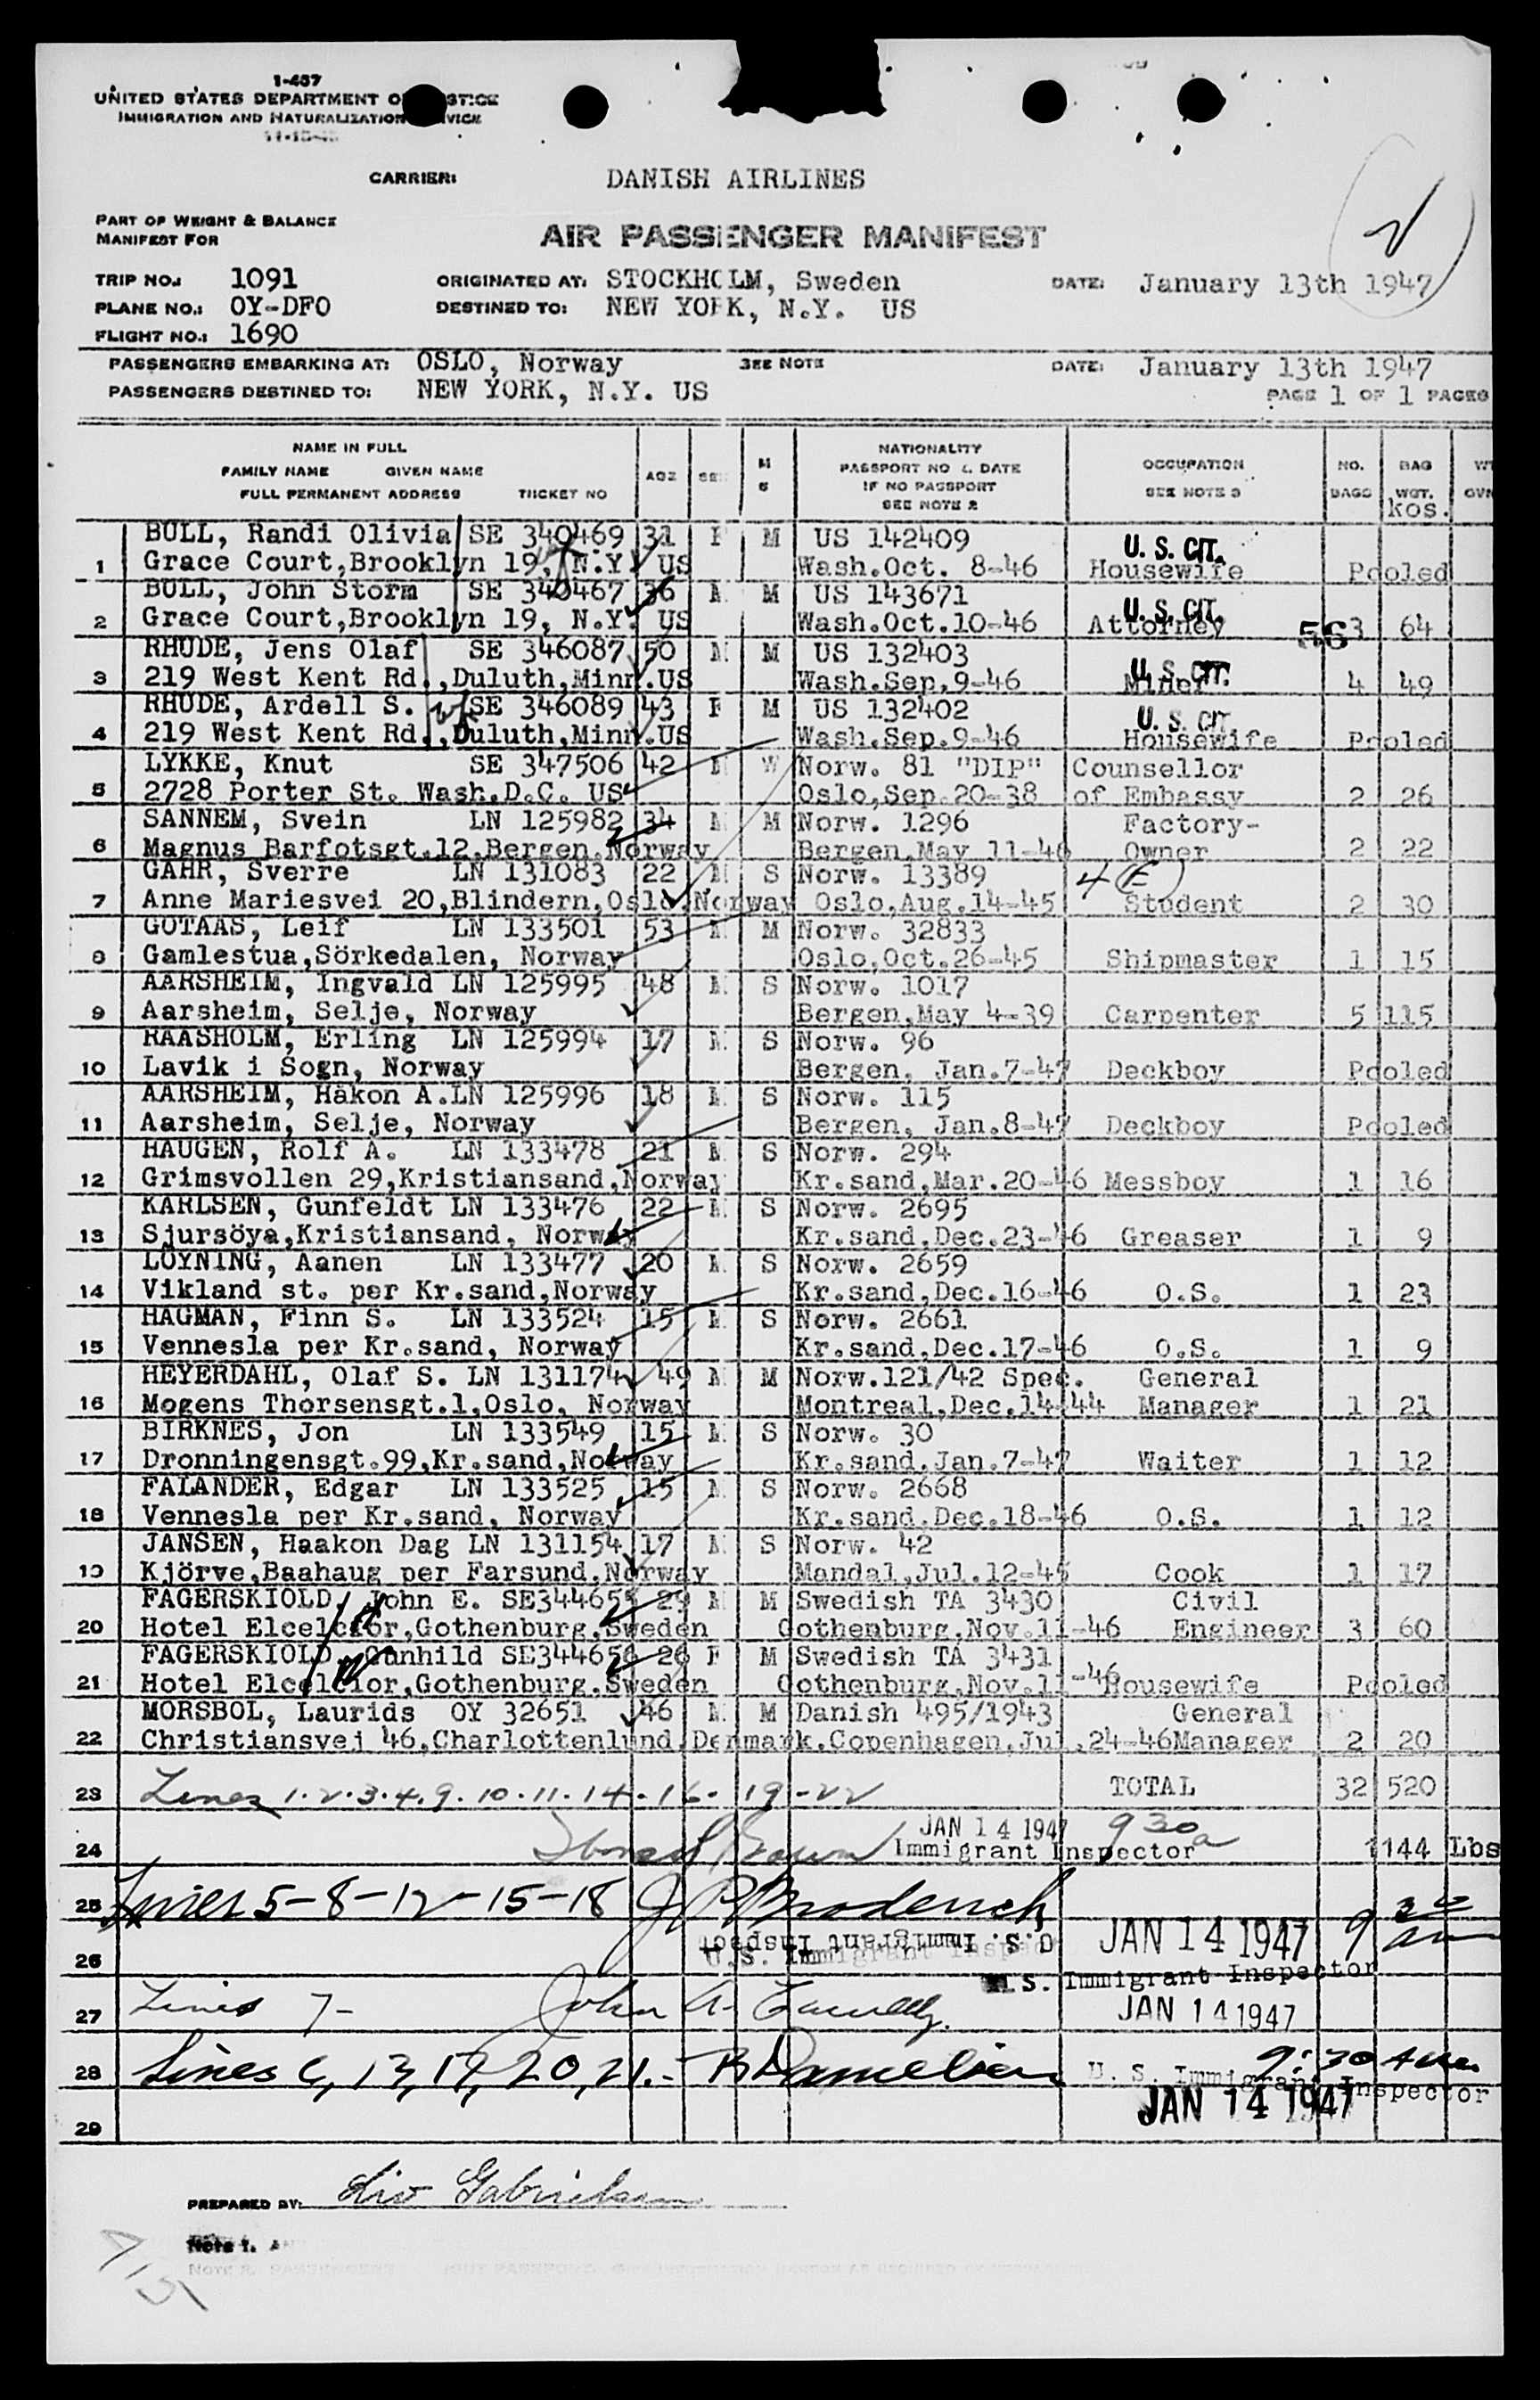 1-467
UNITED STATES DEPARTMENT OF JUSTICE
IMMIGRATION AND NATURALIZATION SERVICE
CARRIER: DANISH AIRLINES
PART OF WEIGHT & BALANCE
MANIFEST FOR
AIR PASSENGER MANIFEST
TRIP NO.: 1091 ORIGINATED AT: STOCKHOLM, Sweden DATE: January 13th 1947
PLANE NO.: OY-DFO DESTINED TO: NEW YORK, N.Y. US
FLIGHT NO.: 1690
PASSENGERS EMBARKING AT: OSLO, Norway SEE NOTE DATE: January 13th 1947
PASSENGERS DESTINED TO: NEW YORK, N.Y. US PAGE 1 OF 1 PAGES
NAME IN FULL NATIONALITY
FAMILY NAME GIVEN NAME AGE SEX M PASSPORT NO & DATE OCCUPATION NO. BAG WT
S IF NO PASSPORT
FULL PERMANENT ADDRESS TICKET NO SEE NOTE 2 SEE NOTE 3 BAGS WGT.
kos.
BULL, Randi Olivia SE 340469 31 F M US 142409 U. S. CIT.
1 Grace Court,Brooklyn 19, N.Y. US Wash.Oct. 8-46 Housewife Pooled
BULL, John Storm SE 340467 36 M M US 143671 U. S. CIT.
2 Grace Court,Brooklyn 19, N.Y. US Wash.Oct.10-46 Attorney 563 64
RHUDE, Jens Olaf SE 346087 50 M M US 132403 U. S. CIT.
3 219 West Kent Rd.,Duluth,Minn.US Wash.Sep.9-46 Miner 4 49
RHUDE, Ardell S. SE 346089 43 F M US 132402 U. S. CIT.
4 219 West Kent Rd.,Duluth,Minn.US Wash.Sep.9-46 Housewife Pooled
LYKKE, Knut SE 347506 42 M W Norw. 81 "DIP" Counsellor
5 2728 Porter St. Wash.D.C. US Oslo,Sep.20-38 of Embassy 2 26
SANNEM, Svein LN 125982 34 M M Norw. 1296 Factory-
6 Magnus Barfotsgt.12,Bergen,Norway Bergen,May 11-46 Owner 2 22
GAHR, Sverre LN 131083 22 M S Norw. 13389 4 (E)
7 Anne Mariesvei 20,Blindern,Oslo,Norway Oslo,Aug.14-45 Student 2 30
GOTAAS, Leif LN 133501 53 M M Norw. 32833
8 Gamlestua,Sörkedalen, Norway Oslo,Oct.26-45 Shipmaster 1 15
AARSHEIM, Ingvald LN 125995 48 M S Norw. 1017
9 Aarsheim, Selje, Norway Bergen,May 4-39 Carpenter 5 115
RAASHOLM, Erling LN 125994 17 M S Norw. 96
10 Lavik i Sogn, Norway Bergen, Jan.7-47 Deckboy Pooled
AARSHEIM, Håkon A.LN 125996 18 M S Norw. 115
11 Aarsheim, Selje, Norway Bergen, Jan.8-47 Deckboy Pooled
HAUGEN, Rolf A. LN 133478 21 M S Norw. 294
12 Grimsvollen 29,Kristiansand,Norway Kr.sand,Mar.20-46 Messboy 1 16
KARLSEN, Gunfeldt LN 133476 22 M S Norw. 2695
13 Sjursöya,Kristiansand, Norway Kr.sand,Dec.23-46 Greaser 1 9
LOYNING, Aanen LN 133477 20 M S Norw. 2659
14 Vikland st. per Kr.sand,Norway Kr.sand,Dec.16-46 O.S. 1 23
HAGMAN, Finn S. LN 133524 15 M S Norw. 2661
15 Vennesla per Kr.sand, Norway Kr.sand,Dec.17-46 O.S. 1 9
HEYERDAHL, Olaf S. LN 131174 49 M M Norw.121/42 Spec. General
16 Mogens Thorsensgt.1,Oslo, Norway Montreal,Dec.14-44 Manager 1 21
BIRKNES, Jon LN 133549 15 M S Norw. 30
17 Dronningensgt.99,Kr.sand,Norway Kr.sand,Jan.7-47 Waiter 1 12
FALANDER, Edgar LN 133525 15 M S Norw. 2668
18 Vennesla per Kr.sand, Norway Kr.sand,Dec.18-46 O.S. 1 12
JANSEN, Haakon Dag LN 131154 17 M S Norw. 42
19 Kjörve,Baahaug per Farsund,Norway Mandal,Jul.12-45 Cook 1 17
FAGERSKIOLD, John E. SE344655 29 M M Swedish TA 3430 Civil
20 Hotel Elcelcior,Gothenburg,Sweden Gothenburg,Nov.11-46 Engineer 3 60
FAGERSKIOLD, Gunhild SE344656 26 F M Swedish TA 3431
21 Hotel Elcelcior,Gothenburg,Sweden Gothenburg,Nov.11-46 Housewife Pooled
MORSBOL, Laurids OY 32651 46 M M Danish 495/1943 General
22 Christiansvej 46,Charlottenlund,Denmark,Copenhagen,Jul.24-46 Manager 2 20
23 Lines 1.2.3.4.9.10.11.14.16.19-22 TOTAL 32 520
JAN 14 1947 930a
24 Immigrant Inspector 1144 Lbs
25 Lines 5-8-12-15-18 J P Broderick 9 30 am
U.S. Immigrant Inspect JAN 14 1947
26 U.S. Immigrant Inspector
U.S. Immigrant Inspector
27 Lines 7- John A. JAN 14 1947
28 Lines 6, 13, 17, 20, 21.- 9:30 AM
U. S. Immigrant Inspector
JAN 14 1947
29
PREPARED BY: Liv Gabrielsen
Note 1.